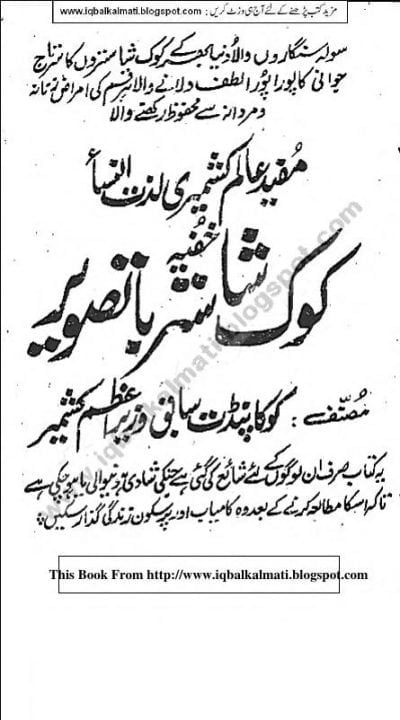 مزید کتب پڑھنے کے لئے آج ہی وزٹ کریں : www.iqbalkalmati.blogspot.com
سولہ سنگاروں والا دنیا بھر کے کوک شاستروں کا سرتاج
جوانی کا پورا پورا لطف دلانے والا ہر قسم کی امراض زنانہ
و مردانہ سے محفوظ رکھنے والا
مفید عالم کشمیری لذت النساء
خفیہ
کوک شاستر باتصویر
مصنف : کوکا پنڈت سابق وزیر اعظم کشمیر
یہ کتاب صرف ان لوگوں کے لئے شائع کی گئی ہے جنکی شادی ہونیوالی یا ہو چکی ہے
تاکہ اسکا مطالعہ کرنے کے بعد وہ کامیاب اور پر سکون زندگی گذار سکیں
This Book From http://www.iqbalkalmati.blogspot.com
www.iqbalkalmati.blogspot.com